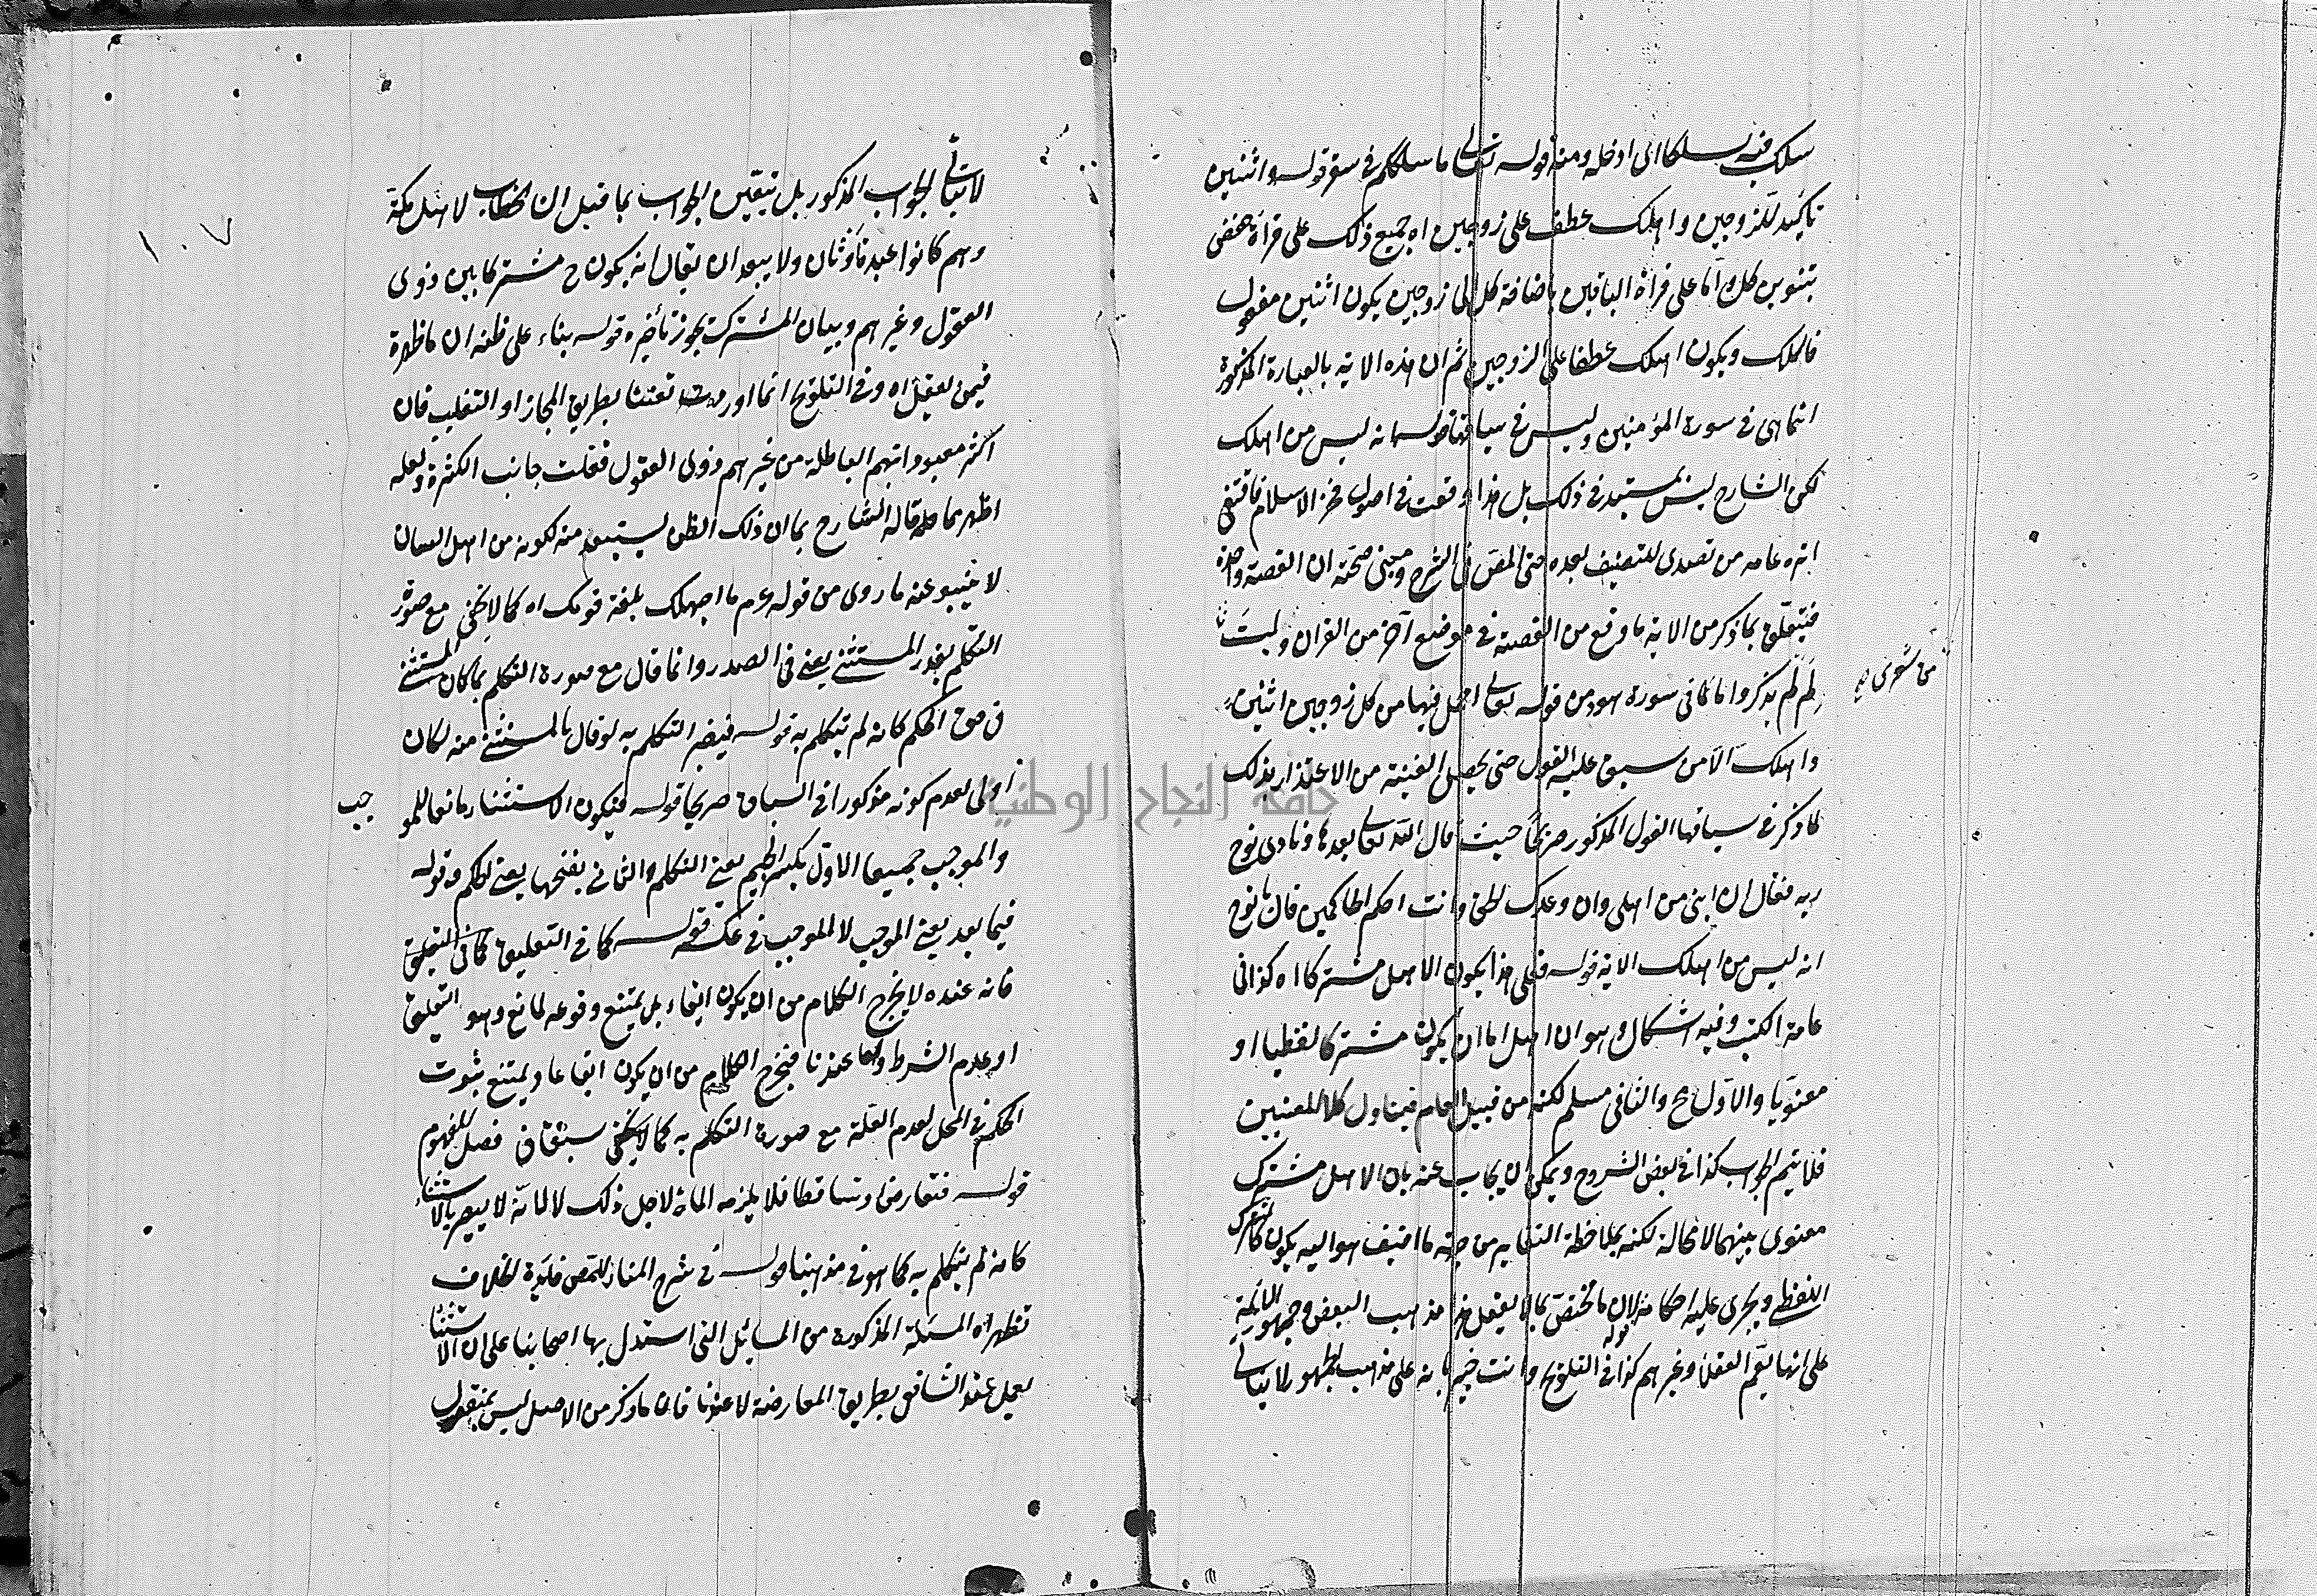 سلك فيه سلكا اى ادخله ومنه قوله تعالى ما سلككم فى سقر قوله واثنين
تأكيد للزوجين واهلك عطف على زوجين اه جميع ذلك على قرأة حفص
بتنوين كل واما على قرأة الباقين باضافة كل الى زوجين يكون اثنين مفعول
فاسلك ويكون اهلك عطفا على الزوجين ثم ان هذه الاية بالعبارة المذكورة
انما هى فى سورة المؤمنين وليس فى سياقها قوله انه ليس من اهلك
لكن الشارح ليس بمستبد فى ذلك بل هذا وقعت فى اصول فخر الاسلام فاقتفى
اثره عامه من تصدى للتصنيف بعده حتى المص فى الشرح ومبنى صحته ان القصة واحدة
فيتعلق بما ذكر من الاية ما وقع من القصة فى موضع آخر من القران وليت
من شعرى صح
لِمَ لَم يذكروا ما كان فى سورة هود من قوله تعالى احمل فيها من كل زوجين اثنين
واهلك الا من سبق عليه القول حتى يحصل الغنية من الاعتذار بذلك
لما ذكر فى سياقها القول المذكور صريحا حيث قال الله تعالى بعدها ونادى نوح
ربه فقال ان ابنى من اهلى وان وعدك الحق وانت احكم الحاكمين قال يا نوح
انه ليس من اهلك الاية قوله فعلى هذا يكون الاهل مشتركا اه كذا فى
عامة الكتب وفيه اشكال وهو ان اهل اما ان يكون مشتركا لفظيا او
معنويا والاول مح والثانى مسلم لكنه من قبيل العام فيتناول كلا المعنيين
فلا يتم الجواب كذا فى بعض الشروح ويمكن ان يجاب عنه بان الاهل مشترك
معنوى بينهما لا محالة لكنه بملاحظة التغاير من جهة ما اضيف هو اليه يكون كالمشترك
اللفظى ويجرى عليه احكامه قوله لان ما مختص بما لا يعقل هذا مذهب البعض وجمهور الائمة
على انها يعم العقلاء وغيرهم كذا فى التلويح وانت خبير بانه على مذهب الجمهور لا يتأتى
١٠٧
لا يتأتى الجواب المذكور بل يتعين الجواب بما قيل ان الخطاب لاهل مكة
وهم كانوا عبدة اوثان ولا يبعد ان يقال انه يكون ح مشتركا بين ذوى
العقول وغيرهم وبيان المشترك يجوز تأخيره قوله بناء على ظنه ان ما ظاهرة
فيمن يعقل اه وفى التلويح انما اوردت تعنتا بطريق المجاز او التغليب فان
اكثر معبوداتهم الباطلة من غير هم ذوى العقول فغلب جانب الكثرة ولعله
اظهر مما قاله الشارح بما ان ذلك الظن يستبعد منه لكونه من اهل اللسان
لا ينبو عنه ما روى من قوله عم ما اجهلك بلغة قومك اه كما لا يخفى مع صورة
التكلم بقدر المستثنى يعنى فى الصدر وانما قال مع صورة التكلم بما كان المستثنى
فى حق الحكم كانه لم يتكلم به قوله فيصير التكلم به لو قال بالمستثنى منه لكان
اولى لعدم كونه مذكورا فى السباق صريحا قوله فيكون الاستثناء مانعا للمو
جب
والموجب جميعا الاول بكسر الجيم يعنى التكلم والثانى بفتحها يعنى الحكم وقوله
فيما بعد يعنى الموجب لا الموجب فى عكسه قوله كما فى التعليق كما فى التعليق
فانه عنده لا يخرج الكلام من ان يكون ايقاعا بل يمتنع وقوعه لمانع وهو التعليق
او عدم الشرط واما عندنا فيخرج الكلام من ان يكون ايقاعا ويمتنع ثبوت
الحكم فى المحل لعدم العلة مع صورة التكلم به كما لا يخفى سبق فى فصل المفهوم
قوله فتعارضا وتساقطا فلا يلزمه المائة لاجل ذلك لا لانه لا يصير بالاستثناء
كانه لم يتكلم به كما هو فى مذهبنا قوله فى شرح المنار للمص فائدة الخلاف
تظهر اه المسئلة المذكورة من المسائل التى استدل بها اصحابنا على ان الاستثناء
يعمل عند الشافعى بطريق المعارضة لا عندنا فان ما ذكر من الاصل ليس بمنقول
جامعة النجاح الوطنية